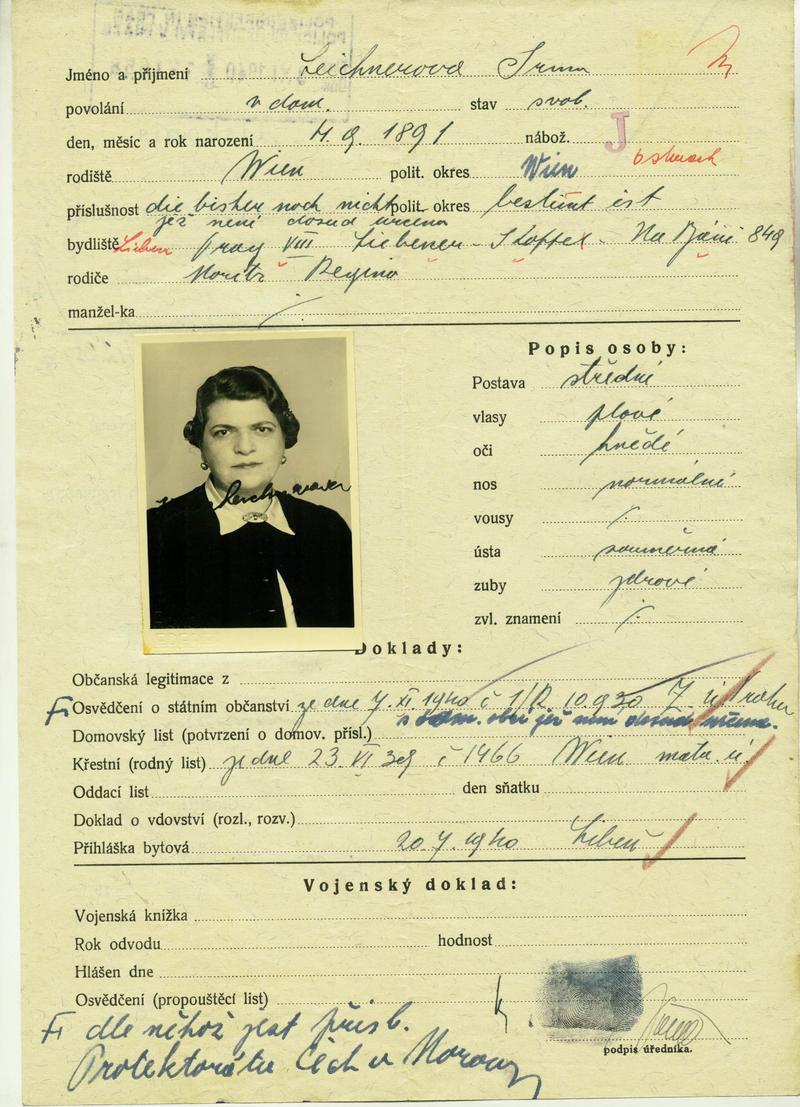 Jméno a příjmení Leichnerová Irma
povolání v dom. stav svob.
den, měsíc a rok narození 4. 9. 1891 nábož. J
rodiště Wien polit. okres Wien
příslušnost die bisher noch nicht polit. okres bestimt ist
jež není dosud určena
bydliště Lieben Prag VIII Liebener - Na 849
rodiče Moritz Regina
manžel-ka /.
Popis osoby:
Postava střední
vlasy plavé
oči hnědé
nos normální
vousy /.
ústa souměrná
zuby zdravé
zvl. znamení /.
Doklady:
Občanská legitimace z
Osvědčení o státním občanství ze dne 7. XI. 1940 č
dosud určena.
Domovský list (potvrzení o domov. přísl.)
Křestní (rodný list) ze dne 23. VI 39 č 1466 Wien matr. ú.
Oddací list den sňatku
Doklad o vdovství (rozl., rozv.)
Přihláška bytová 20. 7. 1940 Libeň
Vojenský doklad:
Vojenská knížka
Rok odvodu hodnost
Hlášen dne
Osvědčení (propouštěcí list)
dle něhož jest přísl.
Protektorátu Čech a Moravy
podpis úředníka.